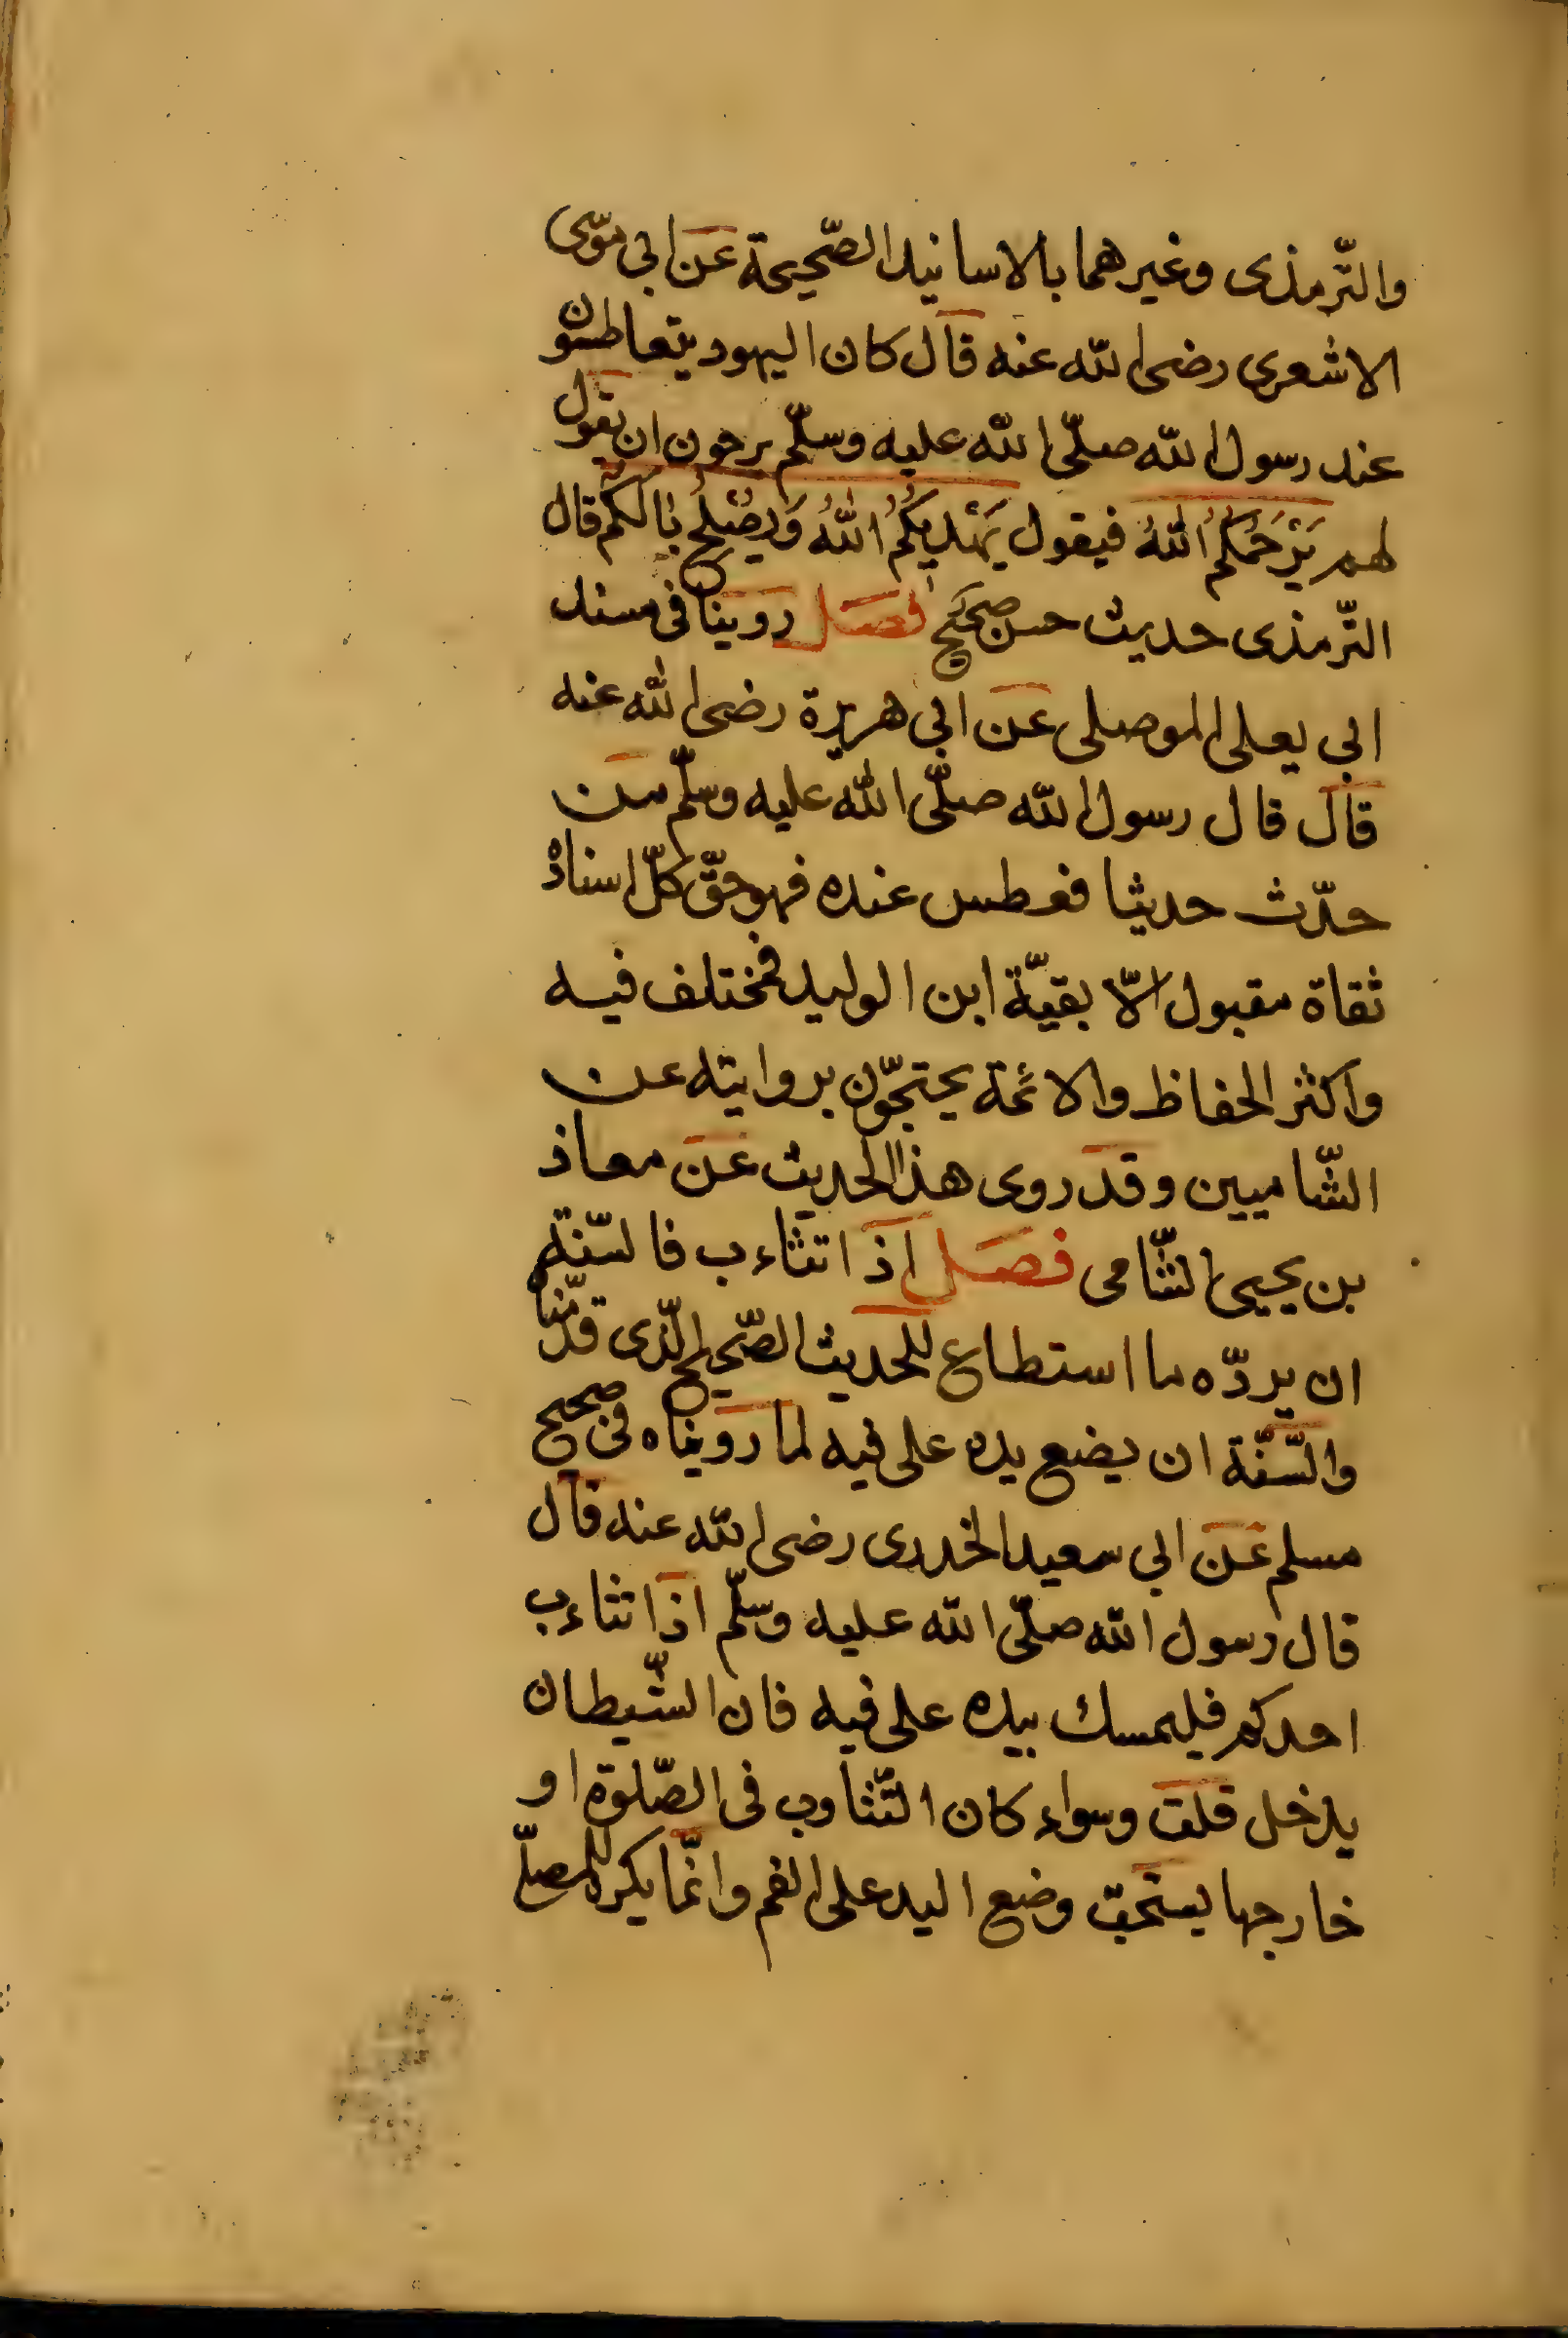 والتّرمذى وغيرهما بالاسانيد الصّحيحة عن ابى موسى
الاشعرى رضى الله عنه قال كان اليهود يتعاطسون
عند رسول الله صلّى الله عليه وسلّم يرجون ان يقول
لهم يَرْحَمُكُمُ اللهُ فيقول يَهْدِيكُمُ اللهُ وَيُصْلِحُ بَالَكُمْ قال
التّرمذى حديث حسن صحيح فصل روينا فى مسند
ابى يعلى الموصلى عن ابى هريرة رضى الله عنه
قال قال رسول الله صلّى الله عليه وسلّم من
حدّث حديثا فعطس عنده فهو حقّ كلّ اسناده
ثقاة مقبول الّا بقيّة ابن الوليد فمختلف فيه
واكثر الحفاظ والائمة يحتجّون بروايته عن
الشّاميين وقد روى هذا الحديث عن معاذ
بن يحيى الشّامى فصل اذا تثاءب فالسّنة
ان يردّه ما استطاع للحديث الصّحيح الّذى قدّمناه
والسّنّة ان يضع يده على فيه لما رويناه فى صحيح
مسلم عن ابى سعيد الخدرى رضى الله عنه قال
قال رسول الله صلّى الله عليه وسلّم اذا تثاءب
احدكم فليمسك بيده على فيه فان الشّيطان
يدخل قلت وسواء كان التّثاوب فى الصّلوة او
خارجها يستحبّ وضع اليد على الفم وانّما يكره للمصلّ